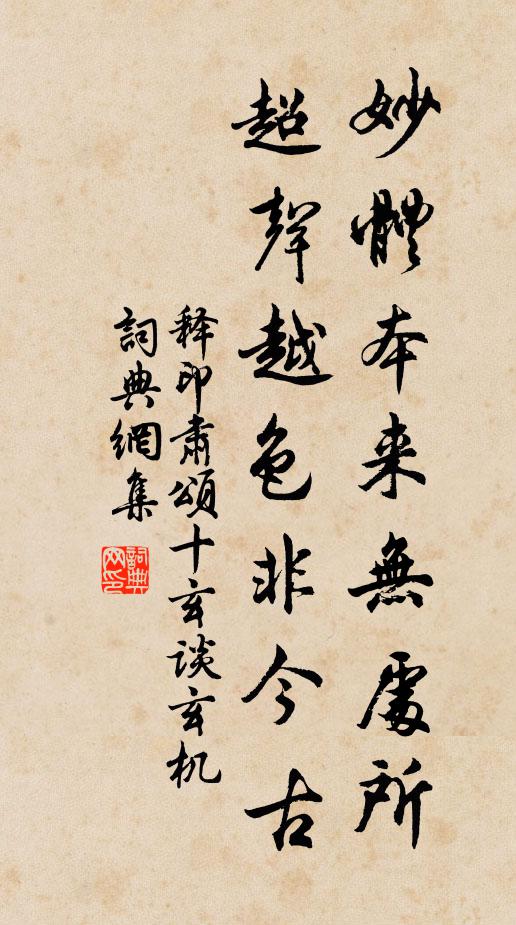 妙體本来無處所
超聲越色非今古
释印肃頌十玄谈玄机
詞典網集
詞典网印